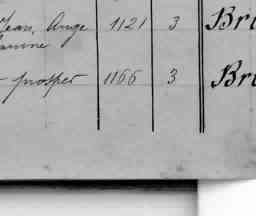 Jean, Ange 1121 3 Bri
prosper 1166 3 Bri